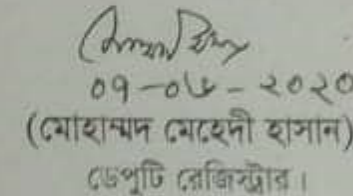 ০৭-০৬-২০২০
(মোহাম্মদ মেহেদী হাসান)
ডেপুটি রেজিস্ট্রার।